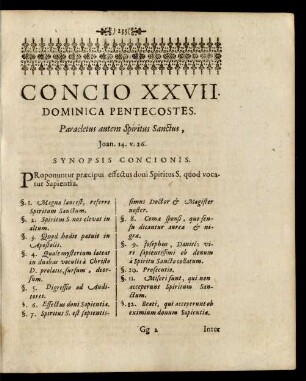 ) 235 (
CONCIO XXVII.
DOMINICA PENTECOSTES.
Paracletus autem Spiritus Sanctus,
Joan. 14. v. 26.
SYNOPSIS CONCIONIS.
PRoponuntur præcipui effectus doni Spiritus S. quód voca-
tur Sapientia.
§. 1. Magna laus est, referre
Spiritum Sanctum.
§. 2. Spiritus S. nos elevat in
altum.
§. 3. Quod hodie patuit in
Apostolis.
§. 4. Quale mysterium lateat
in duabus vocula à Christo
D. prolatis, sursum, deor-
sum.
§. 5. Digressio ad Audi-
tores.
§. 6. Effectus doni Sapientiæ.
§. 7. Spiritus S. est sapientis-
simus Doctor & Magister
noster.
§. 8. Coma sponsi, quo sen-
su dicantur aurea & ni-
gra.
§. 9. Josephus, Daniel; vi-
ri sapientissimi ob donum
à Spiritu Sancto collatum.
§. 10. Prosecutio.
§. 11. Miseri sunt, qui non
acceperunt Spiritum San-
ctum.
§. 12. Beati, qui acceperunt ob
eximium donum Sapientiæ.
Gg 2 Inter